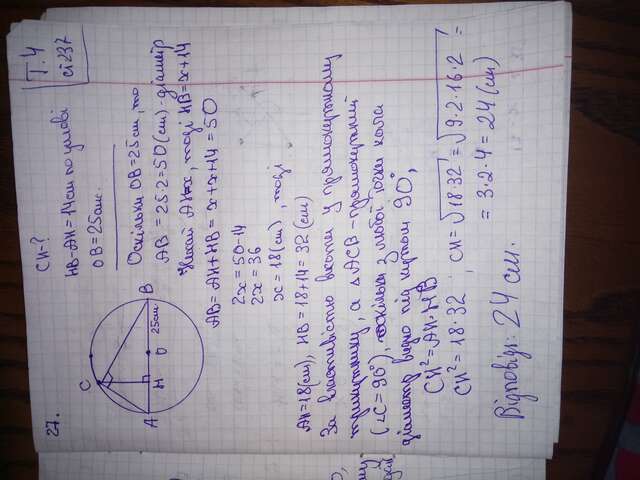 27.
Т.4
ст 237
CH-?
HB-AH=14см по умові
OB=25см.
C
A
H
O
25см
B
Оскільки OB=25см, то
AB=25·2=50(см)-діаметр
Нехай AH=x, тоді HB=x+14
AB=AH+HB=x+x+14=50
2x=50-14
2x=36
x=18(см), тоді
AH=18(см), HB=18+14=32(см)
За властивістю висоти у прямокутному
трикутнику, а △ACB-прямокутний
(∠C=90°), оскільки з любої точки кола
діаметр видно під кутом 90°,
CH²=AH·HB
CH²=18·32; CH=√18·32=√9·2·16·2=
=3·2·4=24(см)
Відповідь: 24 см.